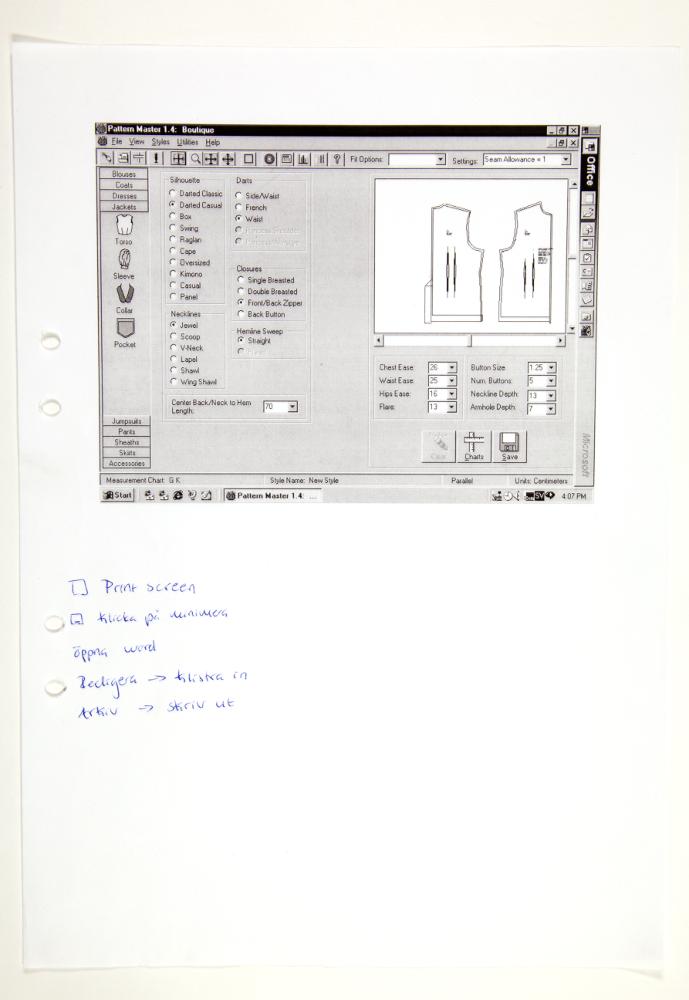 Pattern Master 1.4: Boutique
File View Styles Utilities Help
Fit Options: Settings: Seam Allowance = 1
Office
Blouses
Coats
Dresses
Jackets
Torso
Sleeve
Collar
Pocket
Jumpsuits
Pants
Sheaths
Skirts
Accessories
Silhouette
Darted Classic
Darted Casual
Box
Swing
Raglan
Cape
Oversized
Kimono
Casual
Panel
Necklines
Jewel
Scoop
V-Neck
Lapel
Shawl
Wing Shawl
Darts
Side/Waist
French
Waist
Closures
Single Breasted
Double Breasted
Front/Back Zipper
Back Button
Hemline Sweep
Straight
Center Back/Neck to Hem
Length: 70
Chest Ease: 26 Button Size: 1.25
Waist Ease: 25 Num. Buttons: 5
Hips Ease: 16 Neckline Depth: 13
Flare: 13 Armhole Depth: 7
Clear Charts Save
Microsoft
Measurement Chart: G K Style Name: New Style Parallel Units: Centimeters
Start Pattern Master 1.4: ... SV 4:07 PM
Print screen
Klicka på minimera
öppna word
Redigera -> Klistra in
Arkiv -> skriv ut